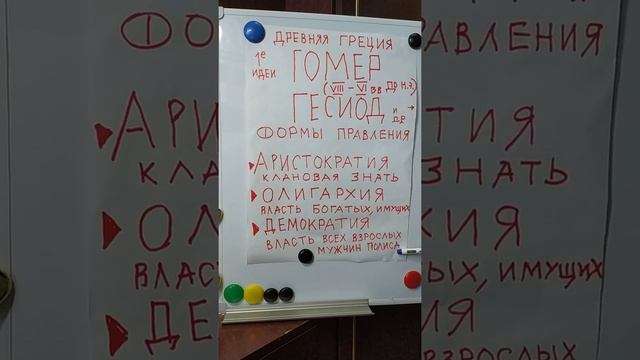 ДРЕВНЯЯ ГРЕЦИЯ
1е ИДЕИ
ГОМЕР
(VIII – VI вв до н.э.)
ГЕСИОД и др →
ФОРМЫ ПРАВЛЕНИЯ
АРИСТОКРАТИЯ
КЛАНОВАЯ ЗНАТЬ
ОЛИГАРХИЯ
ВЛАСТЬ БОГАТЫХ, ИМУЩИХ
ДЕМОКРАТИЯ
ВЛАСТЬ ВСЕХ ВЗРОСЛЫХ
МУЖЧИН ПОЛИСА